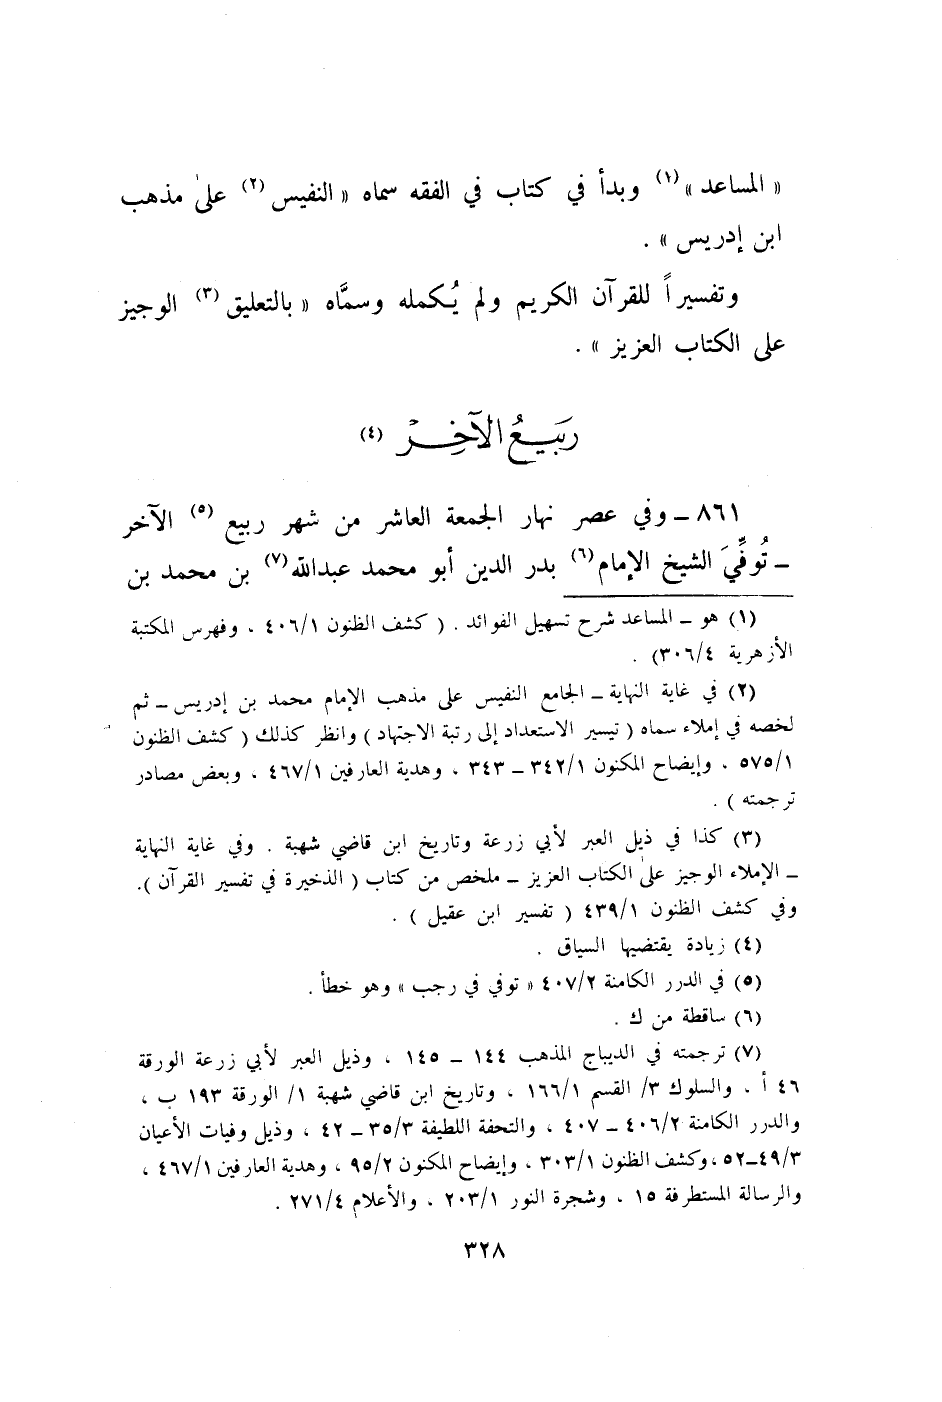 « المساعد »(١) وبدأ في كتاب في الفقه سماه « النفيس(٢) علىٰ مذهب
ابن إدريس » .
وتفسيراً للقرآن الكريم ولم يُكمله وسمَّاه « بالتعليق(٣) الوجيز
على الكتاب العزيز » .
رَبيعُ الآخِر (٤)
٨٦١ ـ وفي عصر نهار الجمعة العاشر من شهر ربيع(٥) الآخر
ـ تُوفِّيَ الشيخ الإمام(٦) بدر الدين أبو محمد عبدالله(٧) بن محمد بن
(١) هو ـ المساعد شرح تسهيل الفوائد . ( كشف الظنون ٤٠٦/١ ، وفهرس المكتبة
الأزهرية ٣٠٦/٤) .
(٢) في غاية النهاية ـ الجامع النفيس على مذهب الإمام محمد بن إدريس ـ ثم
لخصه في إملاء سماه ( تيسير الاستعداد إلى رتبة الاجتهاد ) وانظر كذلك ( كشف الظنون
٥٧٥/١ ، وإيضاح المكنون ٣٤٢/١ ـ ٣٤٣ ، وهدية العارفين ٤٦٧/١ ، وبعض مصادر
ترجمته ) .
(٣) كذا في ذيل العبر لأبي زرعة وتاريخ ابن قاضي شهبة . وفي غاية النهاية
ـ الإملاء الوجيز علىٰ الكتاب العزيز ـ ملخص من كتاب ( الذخيرة في تفسير القرآن ).
وفي كشف الظنون ٤٣٩/١ ( تفسير ابن عقيل ) .
(٤) زيادة يقتضيها السياق .
(٥) في الدرر الكامنة ٤٠٧/٢ « توفي في رجب » وهو خطأ .
(٦) ساقطة من ك .
(٧) ترجمته في الديباج المذهب ١٤٤ ـ ١٤٥ ، وذيل العبر لأبي زرعة الورقة
٤٦ أ . والسلوك ٣/ القسم ١٦٦/١ ، وتاريخ ابن قاضي شهبة ١/ الورقة ١٩٣ ب ،
والدرر الكامنة ٤٠٦/٢ ـ ٤٠٧ ، والتحفة اللطيفة ٣٥/٣ ـ ٤٢ ، وذيل وفيات الأعيان
٤٩/٣ـ٥٢ ،وكشف الظنون ٣٠٣/١ ، وإيضاح المكنون ٩٥/٢ ، وهدية العارفين ٤٦٧/١ ،
والرسالة المستطرفة ١٥ ، وشجرة النور ٢٠٣/١ ، والأعلام ٢٧١/٤ .
٣٢٨